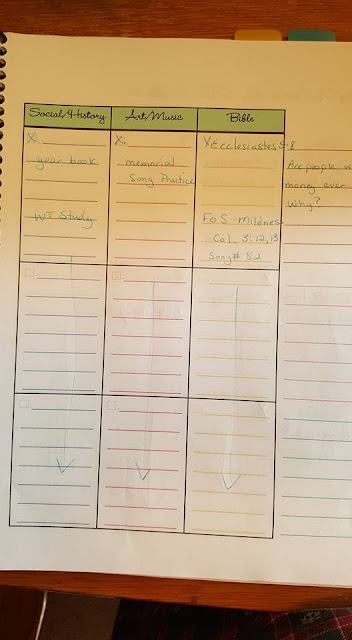 Social/History
Art/Music
Bible
X
year book
WT Study
X
memorial
Song Practice
X Ecclesiastes 5-8
FoS - Mildness
Col. 3:12,13
Song# 82
Are people w
money ever
Why?